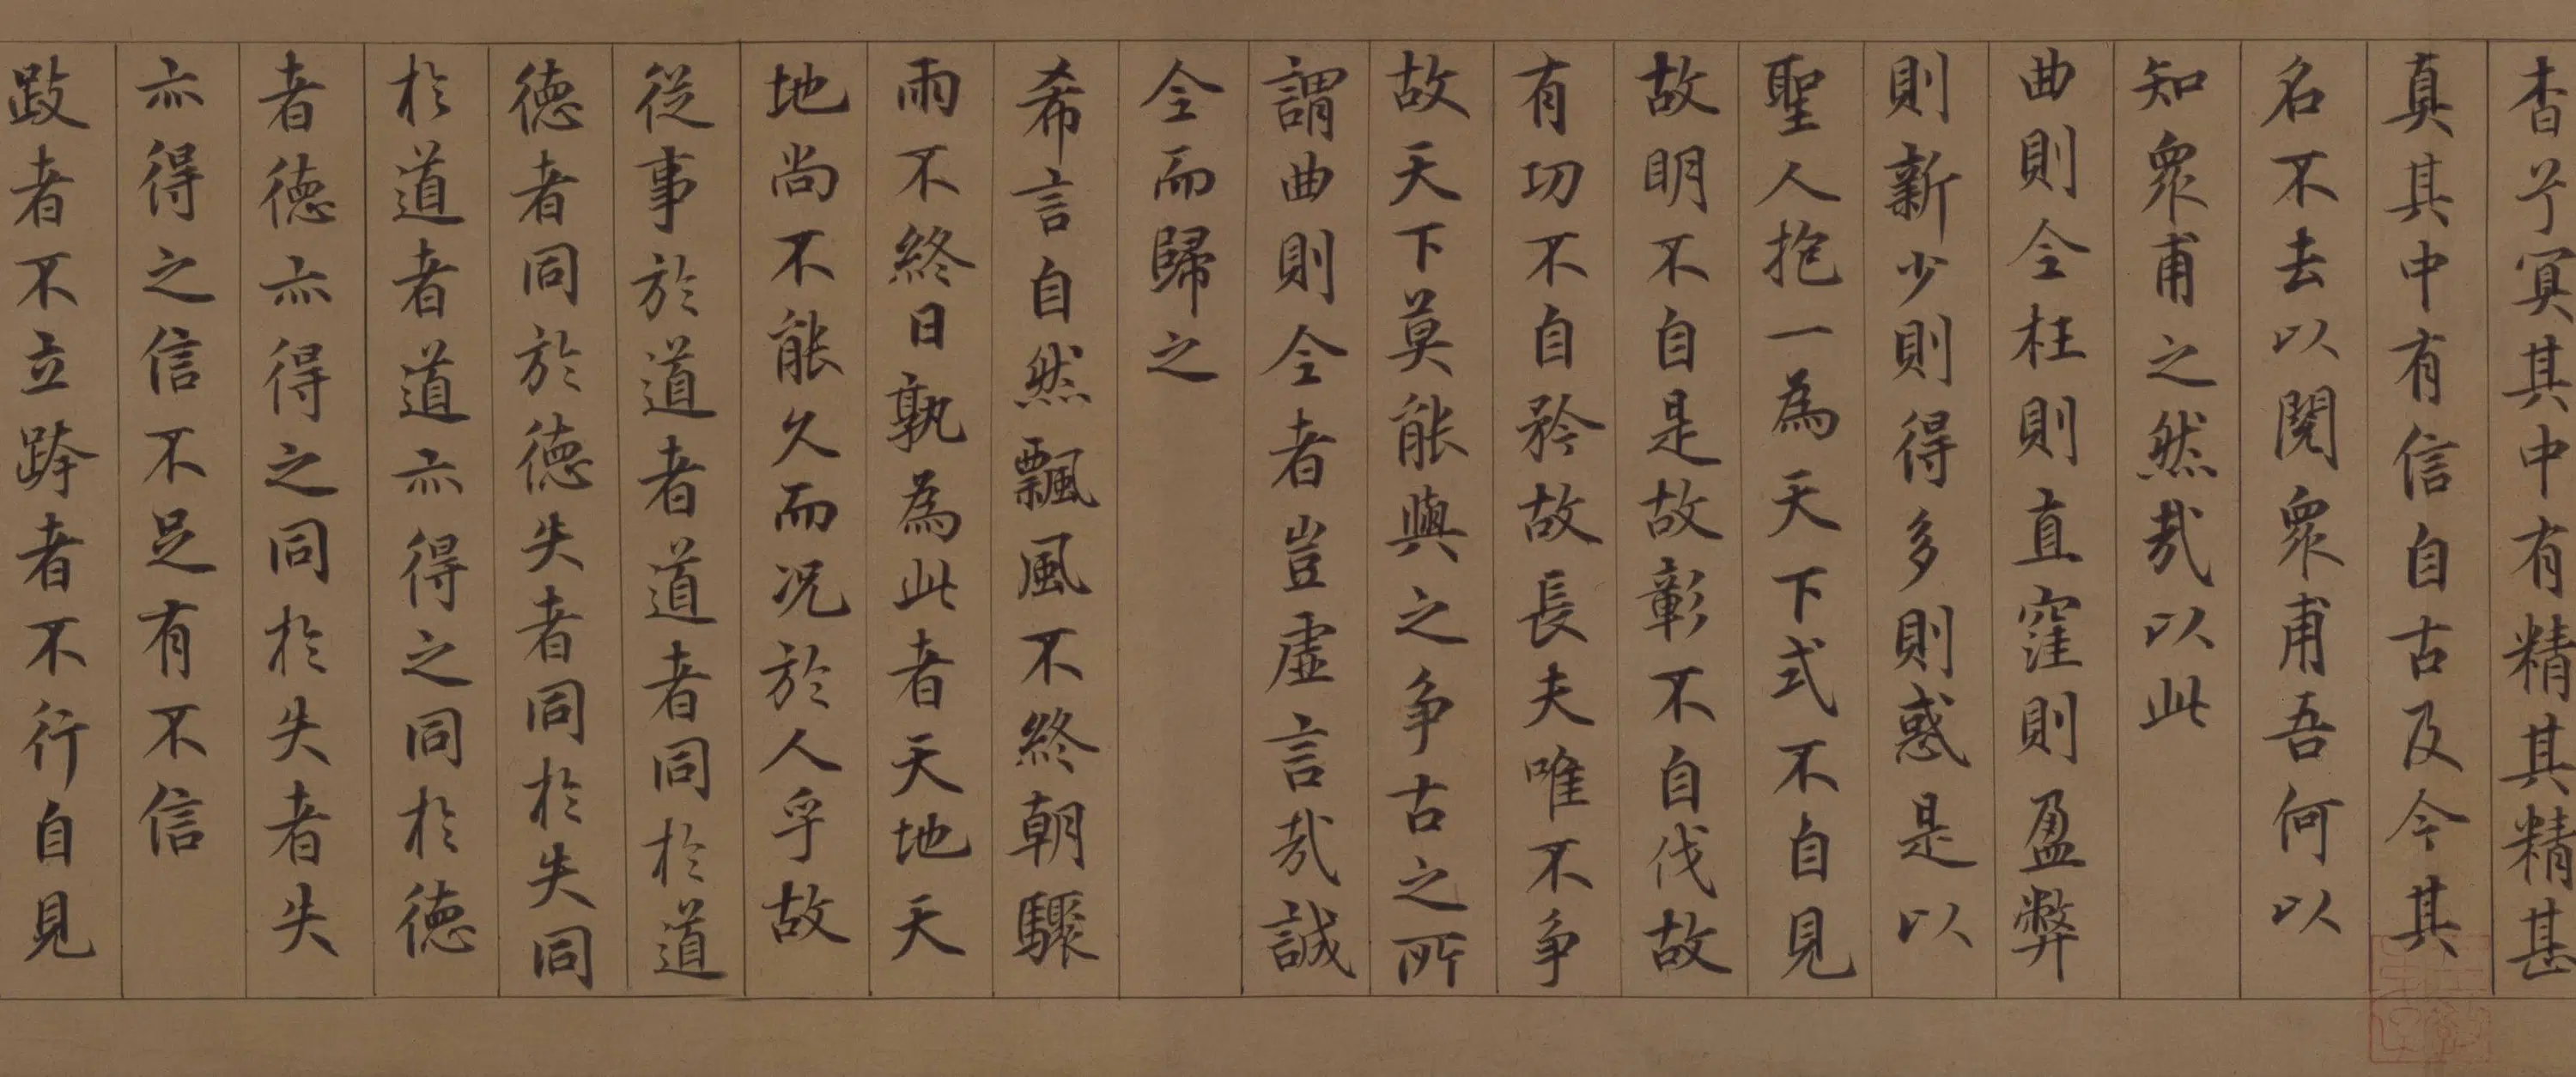 杳兮冥其中有精其精甚
真其中有信自古及今其
名不去以閱衆甫吾何以
知衆甫之然哉以此
曲則全枉則直窪則盈弊
則新少則得多則惑是以
聖人抱一為天下式不自見
故明不自是故彰不自伐故
有功不自矜故長夫唯不争
故天下莫能與之争古之所
謂曲則全者豈虛言哉誠
全而歸之
希言自然飄風不終朝驟
雨不終日孰為此者天地天
地尚不能久而况於人乎故
從事於道者道者同於道
德者同於德失者同於失同
於道者道亦得之同於德
者德亦得之同於失者失
亦得之信不足有不信
跂者不立跨者不行自見